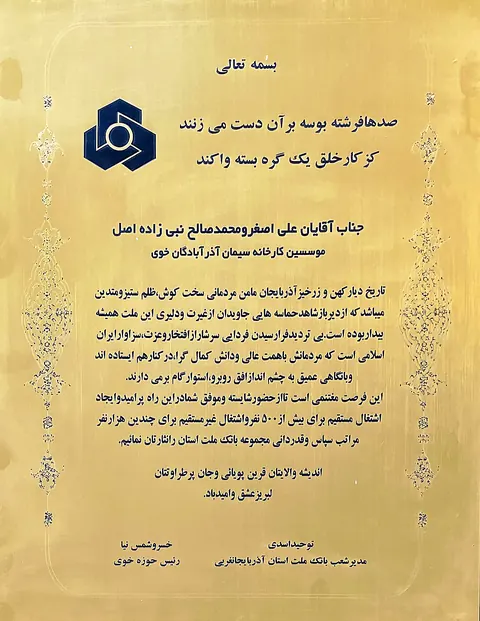 بسمه تعالی
صدها فرشته بوسه بر آن دست می زنند
کز کار خلق یک گره بسته وا کند
جناب آقایان علی اصغر و محمد صالح نبی زاده اصل
موسسین کارخانه سیمان آذرآبادگان خوی
تاریخ دیار کهن و زرخیز آذربایجان مامن مردمانی سخت کوش، ظلم ستیز و متدین
میباشد که از دیرباز شاهد حماسه هایی جاویدان از غیرت و دلیری این ملت همیشه
بیدار بوده است. بی تردید فرارسیدن فردایی سرشار از افتخار و عزت، سزاوار ایران
اسلامی است که مردمانش با همت عالی و دانش کمال گرا، در کنار هم ایستاده اند
و با نگاهی عمیق به چشم انداز افق روبرو، استوار گام بر می دارند.
این فرصت مغتنمی است تا از حضور شایسته و موفق شما در این راه پر امید و ایجاد
اشتغال مستقیم برای بیش از ۵۰۰ نفر و اشتغال غیر مستقیم برای چندین هزار نفر
مراتب سپاس و قدردانی مجموعه بانک ملت استان را نثارتان نمائیم.
اندیشه والایتان قرین پویائی و جان پر طراوتتان
لبریز عشق و امید باد.
توحید اسدی
مدیر شعب بانک ملت استان آذربایجانغربی
خسرو شمس نیا
رئیس حوزه خوی